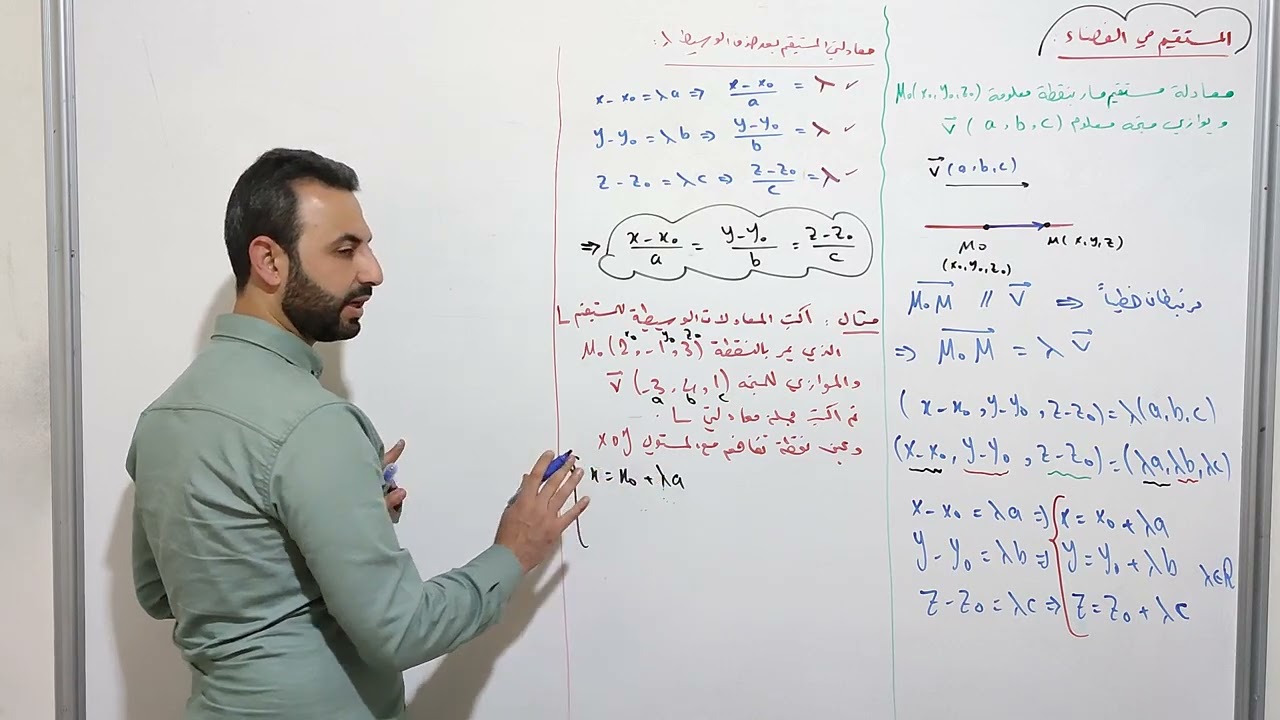 المستقيم في الفضاء :
معادلة مستقيم مار بنقطة معلومة M₀(x₀, y₀, z₀)
ويوازي متجه معلوم V⃗ (a, b, c)
V⃗ (a, b, c)
M₀ M(x, y, z)
(x₀, y₀, z₀)
M₀M // V⃗ ⇒ مرتبطان خطياً
⇒ M₀M = λ V⃗
(x-x₀, y-y₀, z-z₀) = λ(a, b, c)
(x-x₀, y-y₀, z-z₀) = (λa, λb, λc)
x-x₀ = λa ⇒ x = x₀ + λa
y-y₀ = λb ⇒ y = y₀ + λb λ∈R
z-z₀ = λc ⇒ z = z₀ + λc
معادلتي المستقيم بعد حذف الوسيط λ :
x-x₀ = λa ⇒ (x-x₀)/a = λ ✓
y-y₀ = λb ⇒ (y-y₀)/b = λ ✓
z-z₀ = λc ⇒ (z-z₀)/c = λ ✓
⇒ (x-x₀)/a = (y-y₀)/b = (z-z₀)/c
مثال : اكتب المعادلات الوسيطية للمستقيم L
x₀ y₀ z₀
الذي يمر بالنقطة M₀(2, -1, 3)
والموازي للمتجه V⃗ (-3, 4, 1)
a b c
ثم اكتب جملة معادلتي L .
وعين نقطة تقاطع مع المستوي xoy
x = x₀ + λa